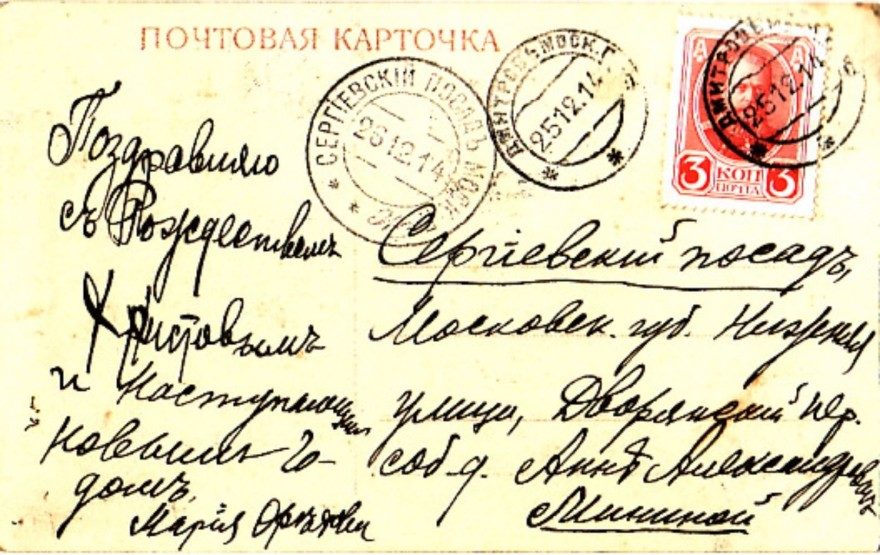 ПОЧТОВАЯ КАРТОЧКА
СЕРГІЕВСКІЙ ПОСАДЪ МОСК.
26 12 14
ДМИТРОВЪ МОСК. Г.
25 12 14
ДМИТРОВЪ
25 12 14
3 КОП 3
ПОЧТА
Поздравляю
съ Рождествомъ
Христовымъ
и Наступающимъ
Новымъ Го-
домъ.
Марія
Сергіевскій посадъ,
Московск. губ. Нижняя
улица, Дворянскій пер.
соб. д. Аннѣ Александровнѣ
Мининой